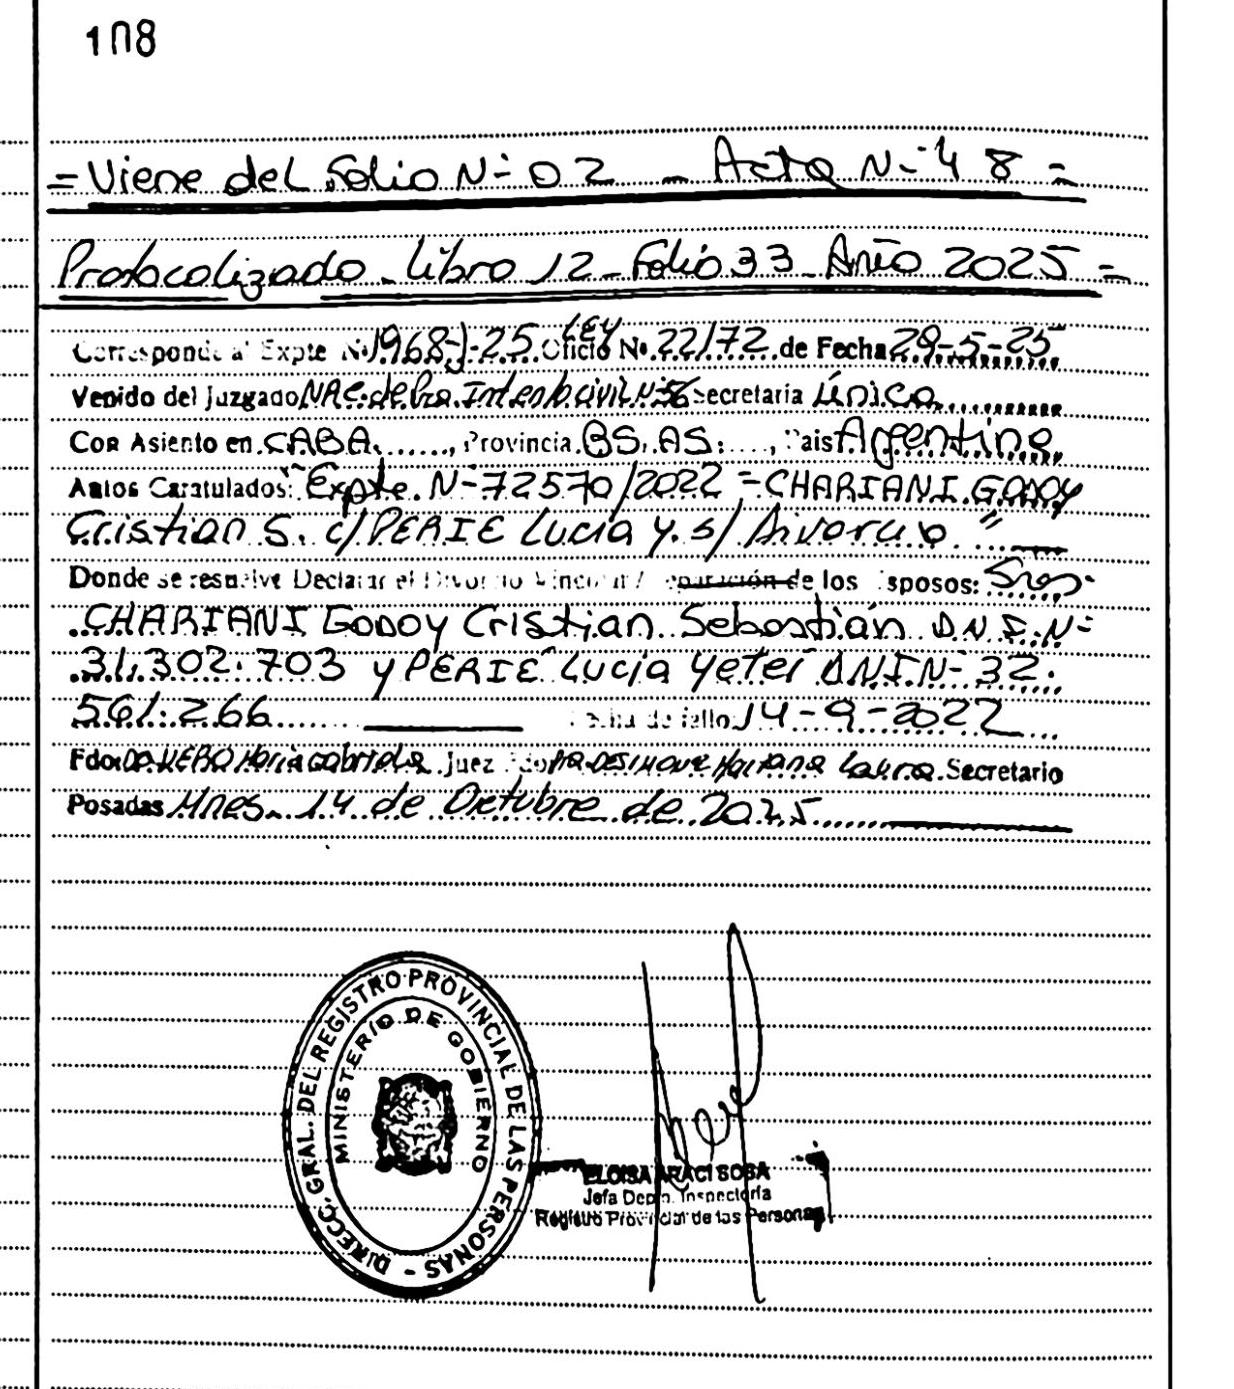 108
= Viene del folio N- 02 - Acta N- 48 =
Protocolizado - Libro 12 - Folio 33 - Año 2025 =
Corresponde a Expte Nº 1968-J-25 Oficio LEY Nº 22172 de Fecha 29-5-25
Venido del Juzgado NAC. de Pra. Inten lo civil Nº 56 Secretaria Única
Con Asiento en CABA. , Provincia BS. AS. , Pais Argentina
Autos Caratulados: "Expte. N- 72570/2022 = CHARIANI GODOY
Cristian S. c/ PERIE Lucia Y. s/ Divorcio "
Donde se resuelve Declarar el Divorcio Vincular / Separación de los Esposos: Sres.
CHARIANI GODOY Cristian Sebastián D.N.I. N-
31.302.703 y PERIE Lucia Yeter DNI. N- 32.
561.266 Fecha de fallo 14-9-2022
Fdo: María Gabriela Juez Fdo Mariana Laura Secretario
Posadas Mnes. 14 de Octubre de 2025
DIRECC. GRAL. DEL REGISTRO PROVINCIAL DE LAS PERSONAS -
MINISTERIO DE GOBIERNO
ELOISA ARACI SOSA
Jefa Depto. Inspectoría
Registro Provincial de las Personas